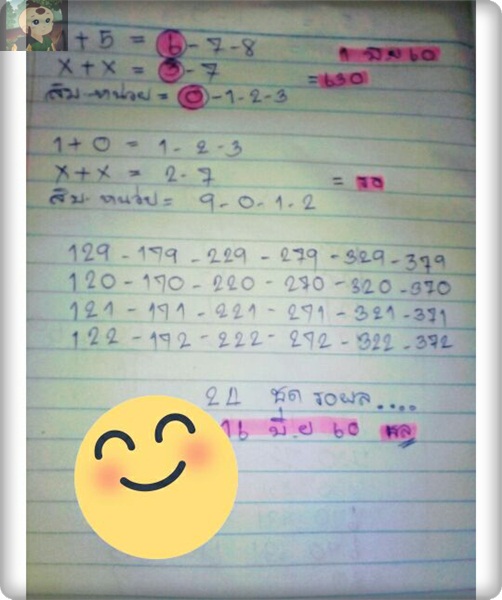 + 5 = 6 - 7 - 8
1 มิ.ย 60
x + x = 3 - 7
= 630
สิบ-หน่วย = 0 - 1 - 2 - 3
1 + 0 = 1 - 2 - 3
x + x = 2 - 7
= รอ
สิบ-หน่วย = 9 - 0 - 1 - 2
129 - 179 - 229 - 279 - 329 - 379
120 - 170 - 220 - 270 - 320 - 370
121 - 171 - 221 - 271 - 321 - 371
122 - 172 - 222 - 272 - 322 - 372
24 ชุด รอผล....
16 มิ.ย 60